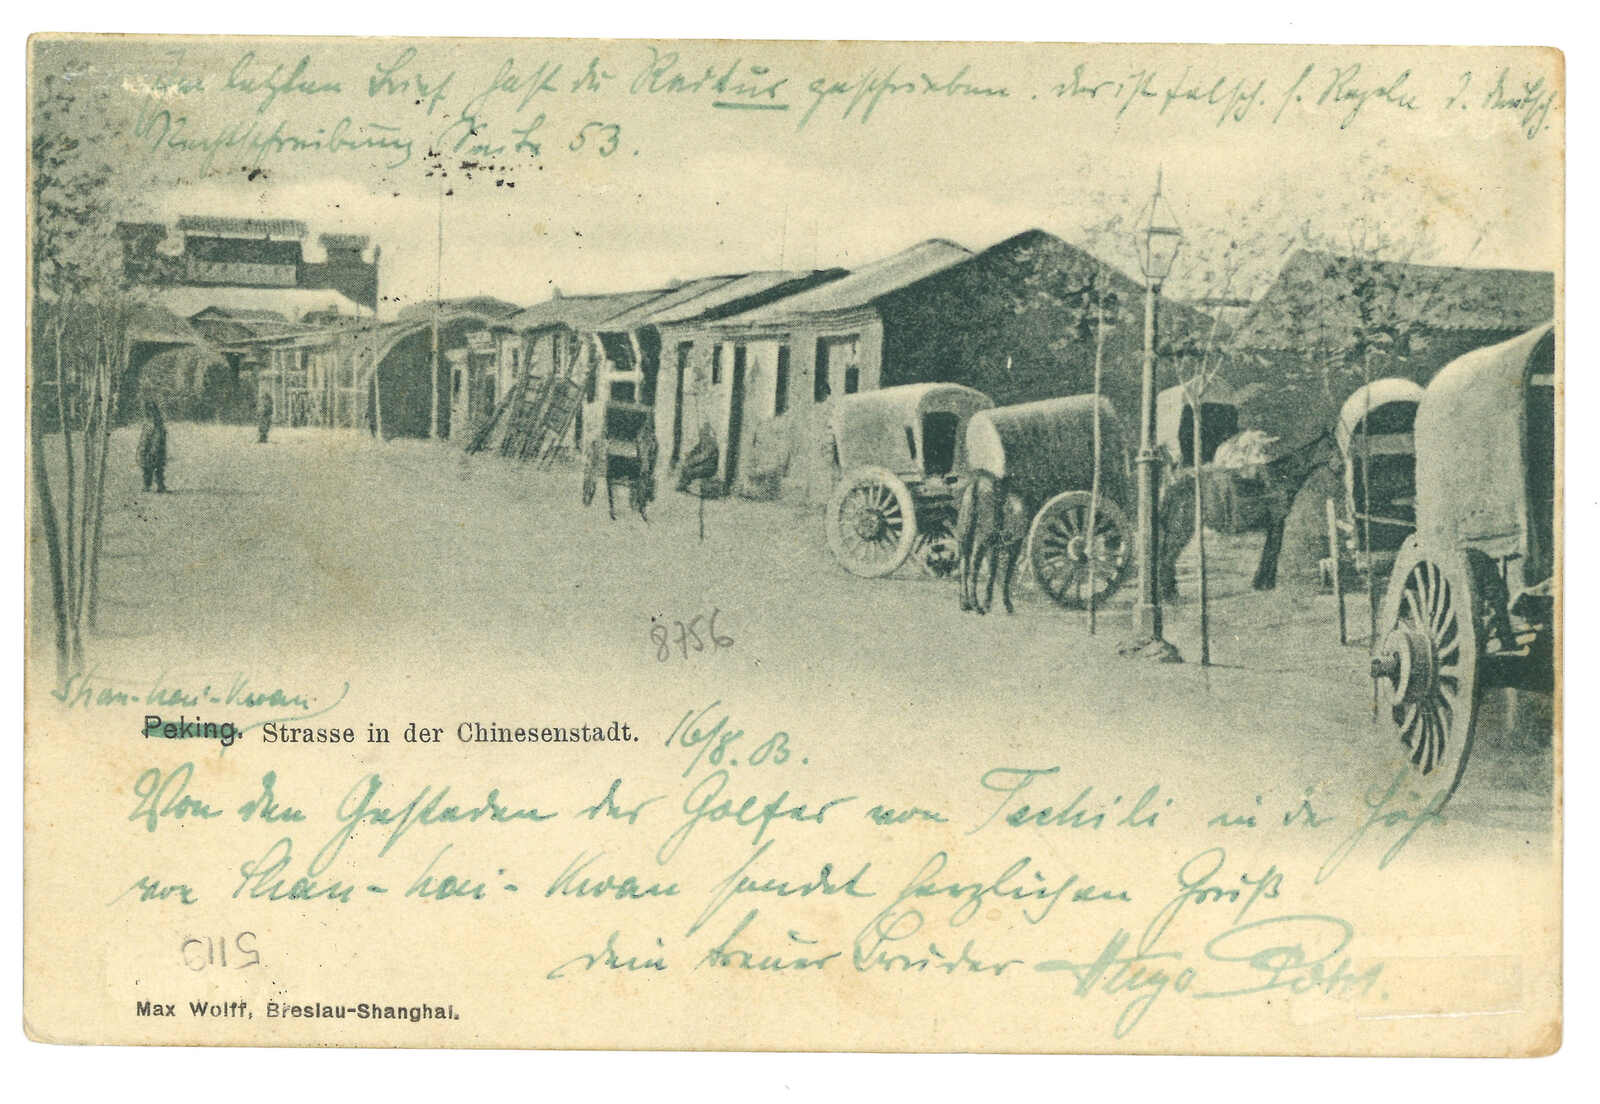 Im letzten Brief hast du Rektur geschrieben. das ist falsch. s. Regeln d. deutsch.
Rechtschreibung Seite 53.
8756
Shan-hai-Kwan
Peking. Strasse in der Chinesenstadt. 16/8.03.
Von den Gestaden des Golfes von Tschili in der Höhe
von Shan-hai-Kwan sendet herzlichen Gruß
dein treuer Bruder Hugo
5119
Max Wolff, Breslau-Shanghai.